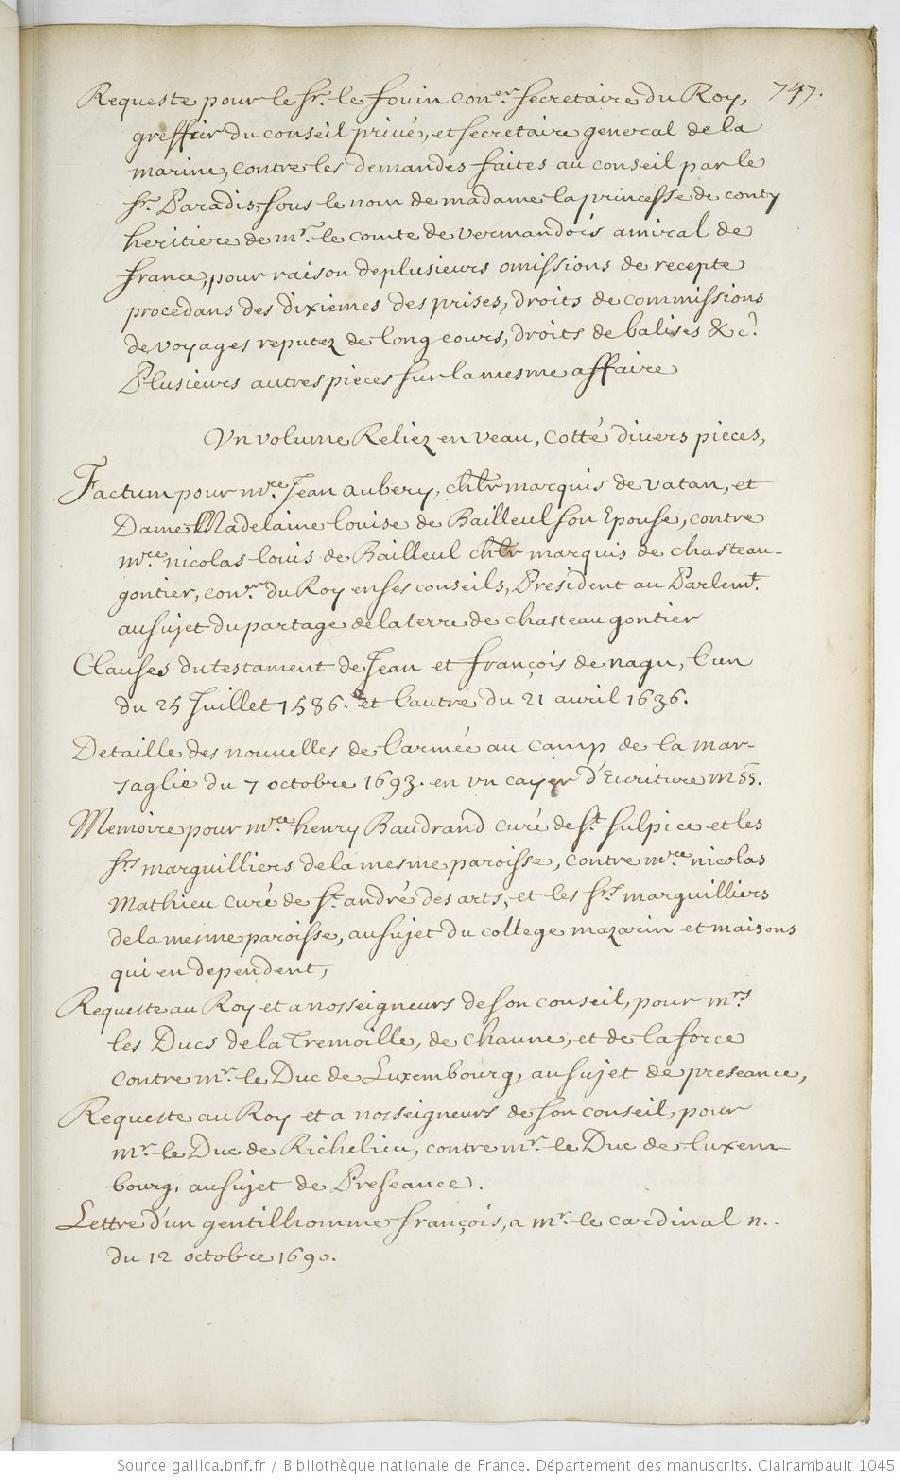 747.
Requeste pour le Sr. le fouin coner. secretaire du Roy,
greffier du conseil privé, et secretaire general de la
marine, contre les demandes faites au conseil par le
Sr. Paradis, sous le nom de madame la princesse de conty
heritiere de mr. le comte de vermandois amiral de
france, pour raison de plusieurs omissions de recepte
procedans des dixiemes des prises, droits de commissions
de voyages reputez de long cours, droits de balises &c?
Plusieurs autres pieces sur la mesme affaire
Un volume Reliez en veau, cotté divers pieces,
Factum pour mre. Jean aubery, chlr marquis de vatan, et
Dame Madelaine louise de Bailleul son Epouse, contre
mre nicolas louis de Bailleul chlr marquis de chasteau-
gontier, coner. du Roy en ses conseils, President au Parlemt.
au sujet du partage de la terre de chasteau gontier
Clauses du testament de Jean et françois de nagu, l'un
du 25 Juillet 1586. et l'autre du 21 avril 1636.
Detaille des nouvelles de l'armée au camp de la mar-
saglie du 7 octobre 1693. en un cayer d'Ecriture mss.
Memoire pour mre henry Baudrand curé de St. sulpice et les
Srs marguilliers de la mesme paroisse, contre mre nicolas
Mathieu curé de St. andré des arts, et les Srs marguilliers
de la mesme paroisse, au sujet du college mazarin et maisons
qui en dependent,
Requeste au Roy et a nosseigneurs de son conseil, pour mrs
les Ducs de la Tremoille, de chaune, et de la force
contre mr. le Duc de Luxembourg, au sujet de preseance,
Requeste au Roy et a nosseigneurs de son conseil, pour
mr. le Duc de Richelieu, contre mr. le Duc de luxem-
bourg, au sujet de Preseance.
Lettre d'un gentilhomme françois, a mr. le cardinal n..
du 12 octobre 1690.
Source gallica.bnf.fr / Bibliothèque nationale de France. Département des manuscrits. Clairambault 1045